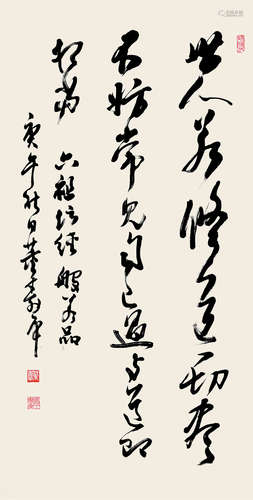 世人若修道一切尽
不妨常見自己過与道即
相當 六祖坛經 般若品
庚午秋日董寿平